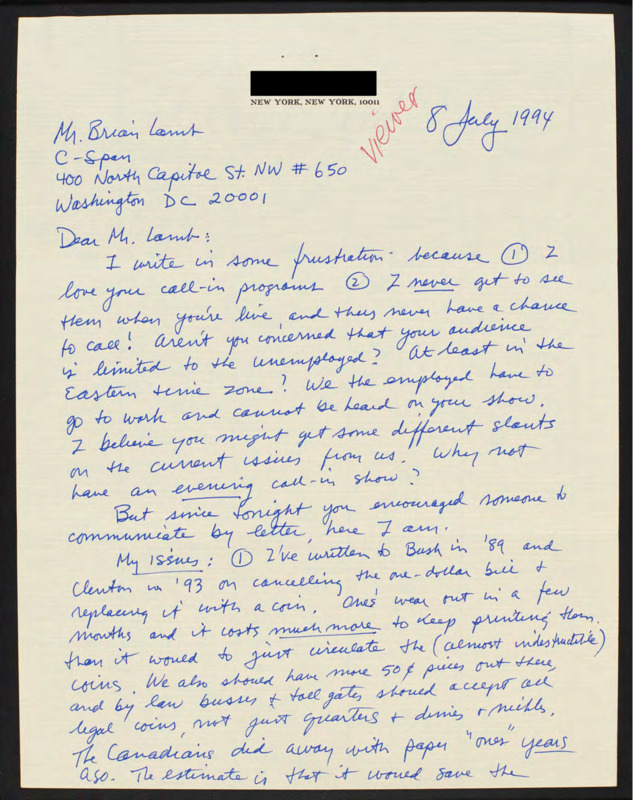 NEW YORK, NEW YORK, 10011
viewer
8 July 1994
Mr. Brian Lamb
C-Span
400 North Capitol St. NW # 650
Washington DC 20001
Dear Mr. Lamb:
I write in some frustration because ① I
love your call-in programs ② I never get to see
them when you're live and thus never have a chance
to call! Aren't you concerned that your audience
is limited to the unemployed? At least in the
Eastern time zone? We the employed have to
go to work and cannot be heard on your show.
I believe you might get some different slants
on the current issues from us. Why not
have an evening call-in show?
But since tonight you encouraged someone to
communicate by letter, here I am.
My issues: ① I've written to Bush in '89 and
Clinton in '93 on cancelling the one-dollar bill &
replacing it with a coin. One's wear out in a few
months and it costs much more to keep printing them
than it would to just circulate the (almost indestructible)
coins. We also should have more 50¢ pieces out there,
and by law busses & toll gates should accept all
legal coins, not just quarters & dimes & nickles.
The Canadians did away with paper "ones" years
ago. The estimate is that it would save the